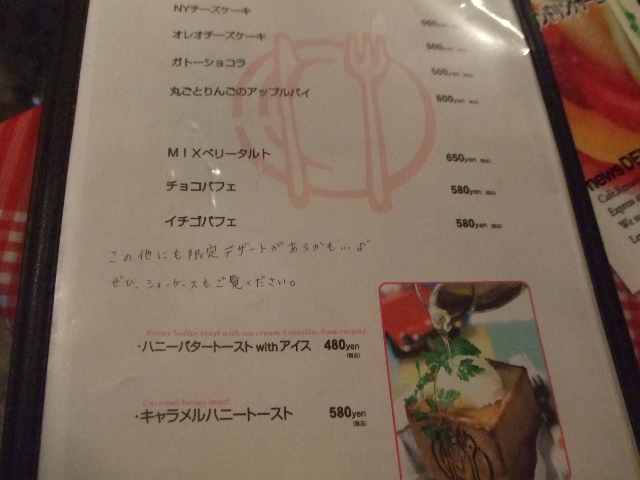 NYチーズケーキ 500yen
オレオチーズケーキ 500yen
ガトーショコラ 500yen
丸ごとりんごのアップルパイ 600yen
MIXベリータルト 650yen
チョコパフェ 580yen
イチゴパフェ 580yen
この他にも限定デザートがあるかも…♪
ぜひ、ショーケースもご覧ください。
Honey butter toast with ice cream (Vanilla, Rum raisin).
・ハニーバタートースト withアイス 480yen
(税込)
Caramel honey toast.
・キャラメルハニートースト 580yen
(税込)
news DE
Cafe Restau
Express
We
Le